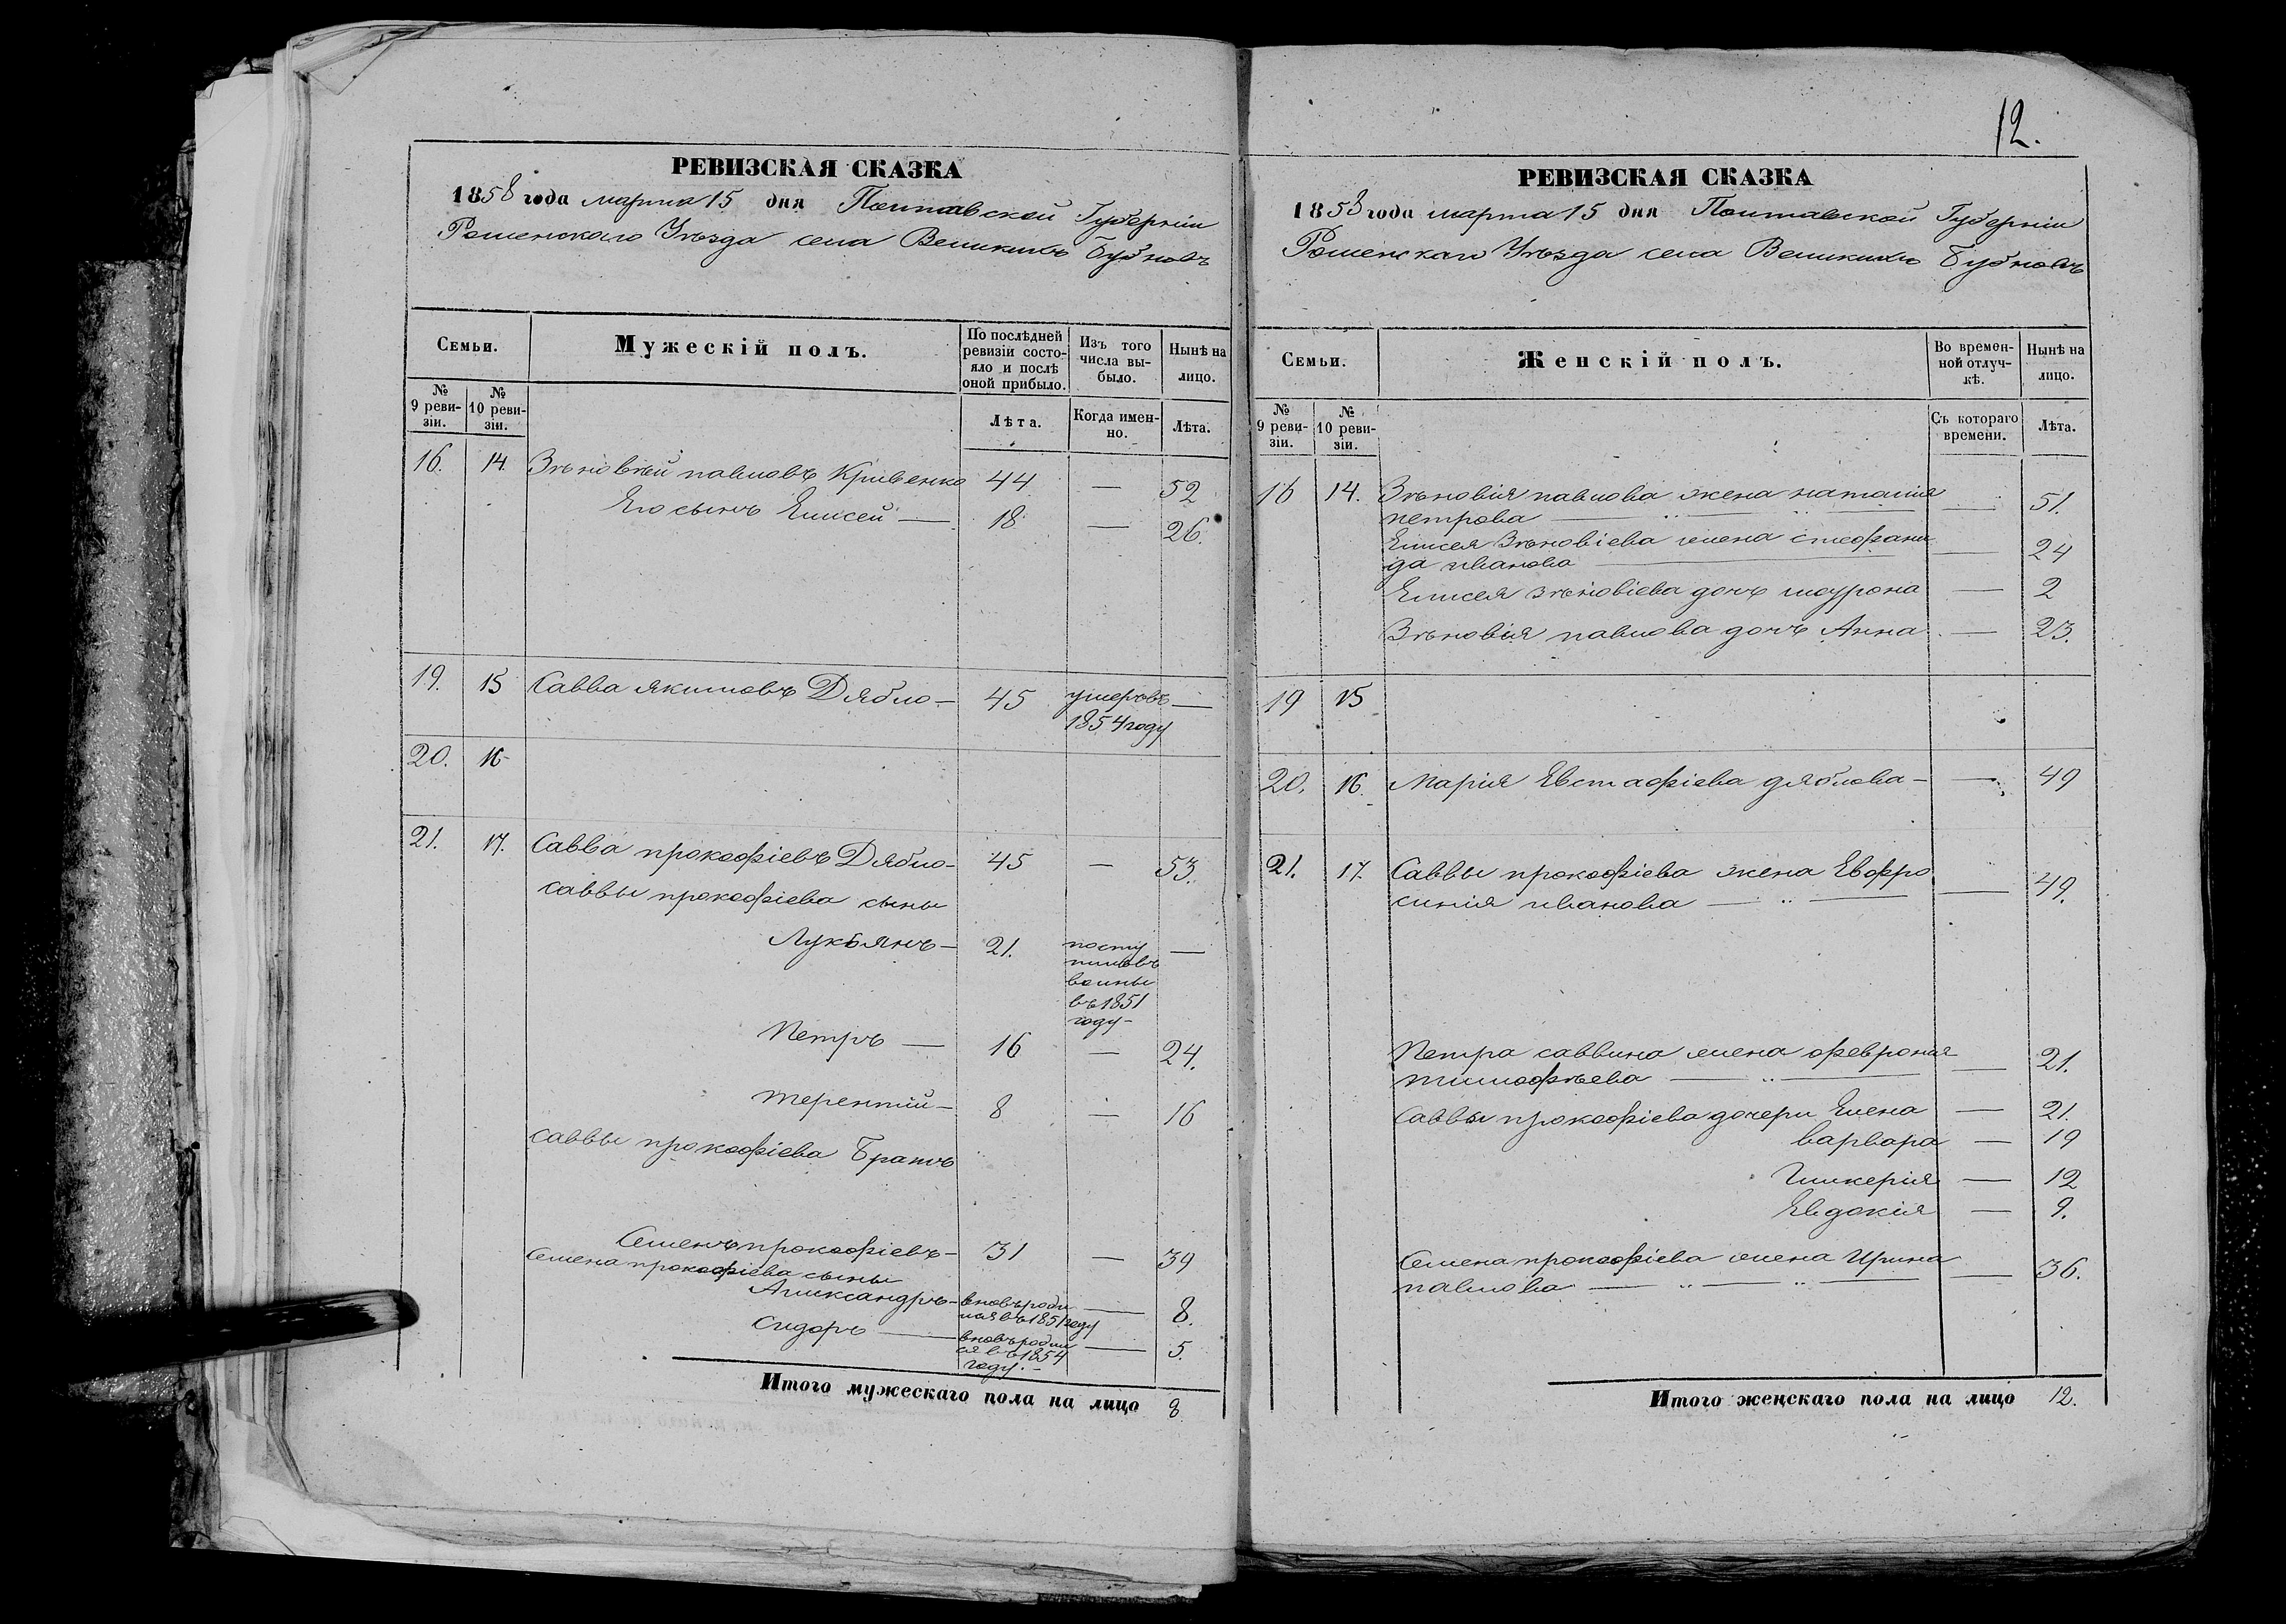 РЕВИЗСКАЯ СКАЗКА
1858 года марта 15 дня Полтавской Губерніи
Роменскаго Уѣзда села Великихъ Бубновъ
Семьи.
Мужескій полъ.
По послѣдней ревизіи состояло и послѣ оной прибыло.
Изъ того числа выбыло.
Нынѣ на лицо.
№ 9 ревизіи.
№ 10 ревизіи.
Лѣта.
Когда именно.
Лѣта.
16. 14. Зѣновѣй павловъ Кривенко 44 — 52
Его сынъ Елисей — 18 — 26.
19. 15 Савва якимовъ Дябло — 45 умеръ въ —
1854 году
20. 16
21. 17. Савва прокофіевъ Дябло — 45 — 53.
Саввы прокофіева сыны
Лукьянъ — 21. посту —
пилъ въ
воины
въ 1851
году —
Петръ — 16 — 24.
терентій — 8 — 16
саввы прокофіева Братъ
Семенъ прокофіевъ — 31 — 39
Семена прокофіева сыны
Александръ — вновь роди — 8.
лся въ 1851 году
Сидоръ — вновь родил — 5.
ся въ 1854
году. —
Итого мужескаго пола на лицо 8
12.
РЕВИЗСКАЯ СКАЗКА
1858 года марта 15 дня Полтавской Губерніи
Роменскаго Уѣзда села Великихъ Бубновъ
Семьи.
Женскій полъ.
Во временной отлучкѣ.
Нынѣ на лицо.
№ 9 ревизіи.
№ 10 ревизіи.
Съ котораго времени.
Лѣта.
16 14. Зѣновія павлова жена наталія
петрова — 51.
Елисея Зѣновіева жена стефани
да иванова — 24
Елисея зѣновіева дочь — 2
Зѣновія павлова дочь Анна — 23.
19 15
20. 16. Марія Евстафіева дяблова — — 49
21. 17. Саввы прокофіева жена Евфро
синія иванова — 49.
Петра саввина жена феврония
тимофѣева — 21.
Саввы прокофіева дочери Елена — 21.
варвара — 19
Гликерія — 12
Евдокія — 9.
Семена прокофіева жена Ирина
павлова — 36.
Итого женскаго пола на лицо 12.